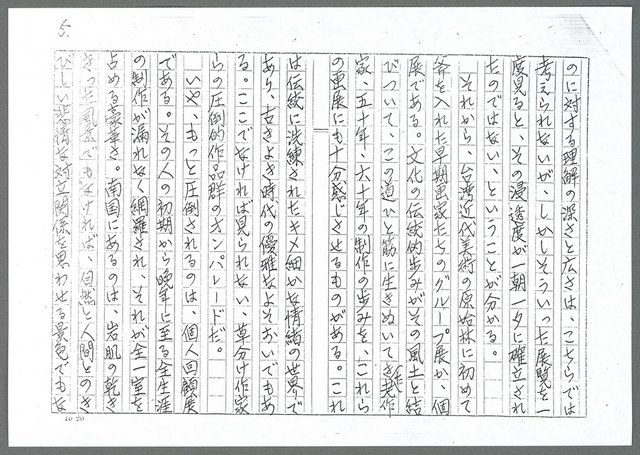 5.
のに対する理解の深さと広さは、こちらでは
考えられないが、しかしそういった展覧を一
度見ると、その浸透度が一朝一夕に確立され
たのではない、ということが分かる。
それから、台湾近代美術の原始林に初めて
斧を入れた早期画家たちのグループ展か、個
展である。文化の伝統的歩みがその風土と結
びついて、この道ひと筋に生きぬいてきた老作
家、五十年、六十年の制作の歩みを、これら
の画展にも十分感じさせるものがある。これ
は伝統に洗練されたキメ細かな情緒の世界で
あり、古きよき時代の優雅なよそおいでもあ
る。ここでなければ見られない、草分け作家
らの圧倒的作品群のオンパレードだ。
いや、もっと圧倒されるのは、個人回顧展
である。その人の初期から晩年に至る全生涯
の制作が漏れなく網羅され、それが全一室を
占める豪華さ。南国にあるのは、岩肌の乾き
きった風景でもなければ、自然と人間とのき
びしい悲情な対立関係を思わせる景色でもな